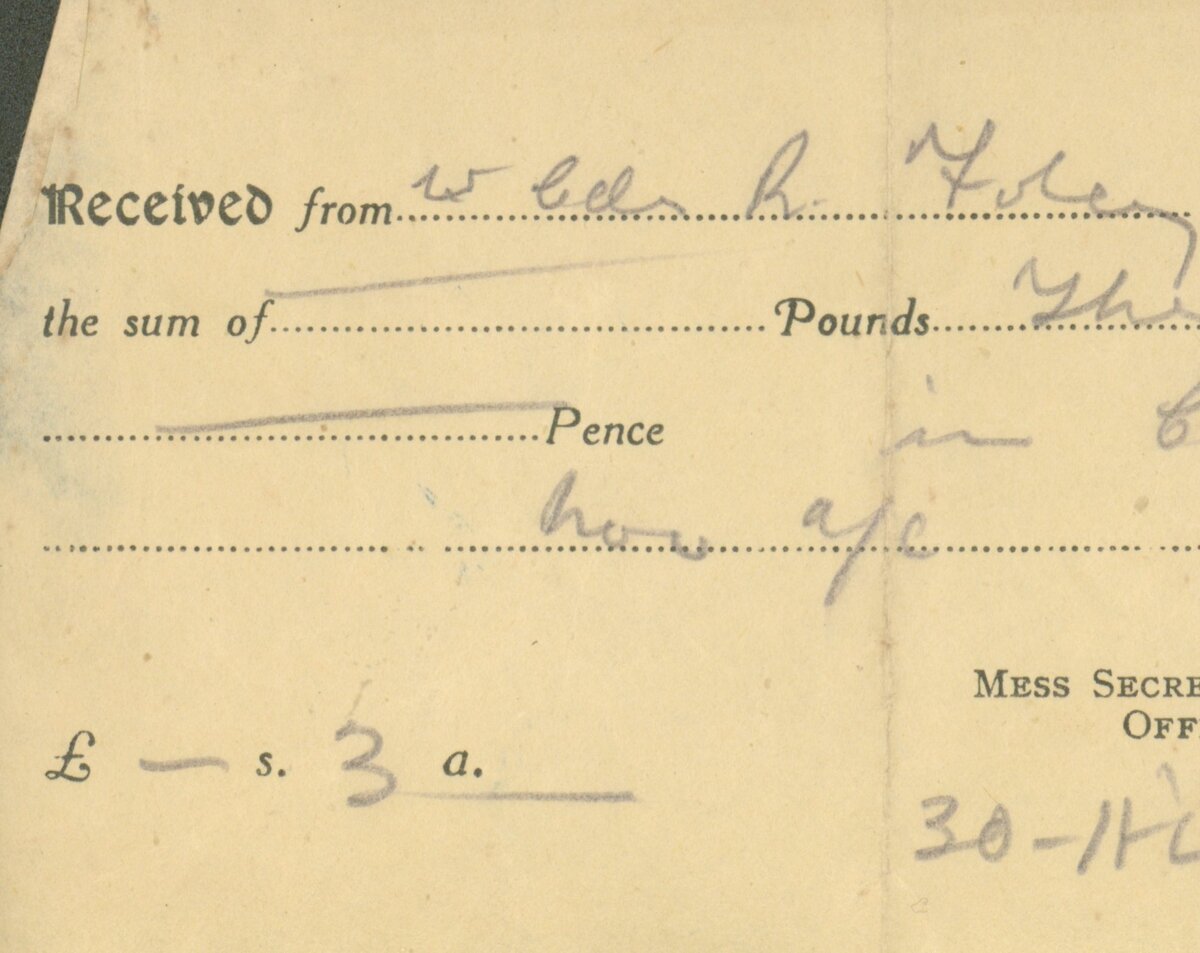 Received from W Cdr R. Foley
the sum of Pounds Thr
Pence in C
Nov a/c
MESS SECRE
OFFI
£ — s. 3 d.
30-11-